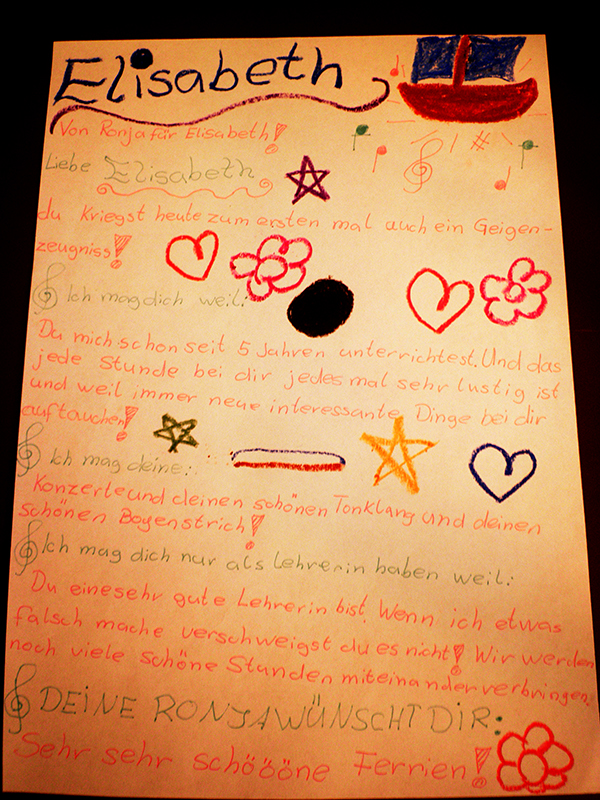 Elisabeth
Von Ronja für Elisabeth!
Liebe Elisabeth
du kriegst heute zum ersten mal auch ein Geigen-
zeugniss!
Ich mag dich weil:
Du mich schon seit 5 Jahren unterrichtest. Und das
jede Stunde bei dir jedes mal sehr lustig ist
und weil immer neue interessante Dinge bei dir
auftauchen!
Ich mag deine:
Konzerte und deinen schönen Tonklang und deinen
schönen Bogenstrich!
Ich mag dich nur als Lehrerin haben weil:
Du eine sehr gute Lehrerin bist. Wenn ich etwas
falsch mache verschweigst du es nicht! Wir werden
noch viele schöne Stunden miteinander verbringen.
DEINE RONJA WÜNSCHT DIR:
Sehr sehr schöööne Ferrien!